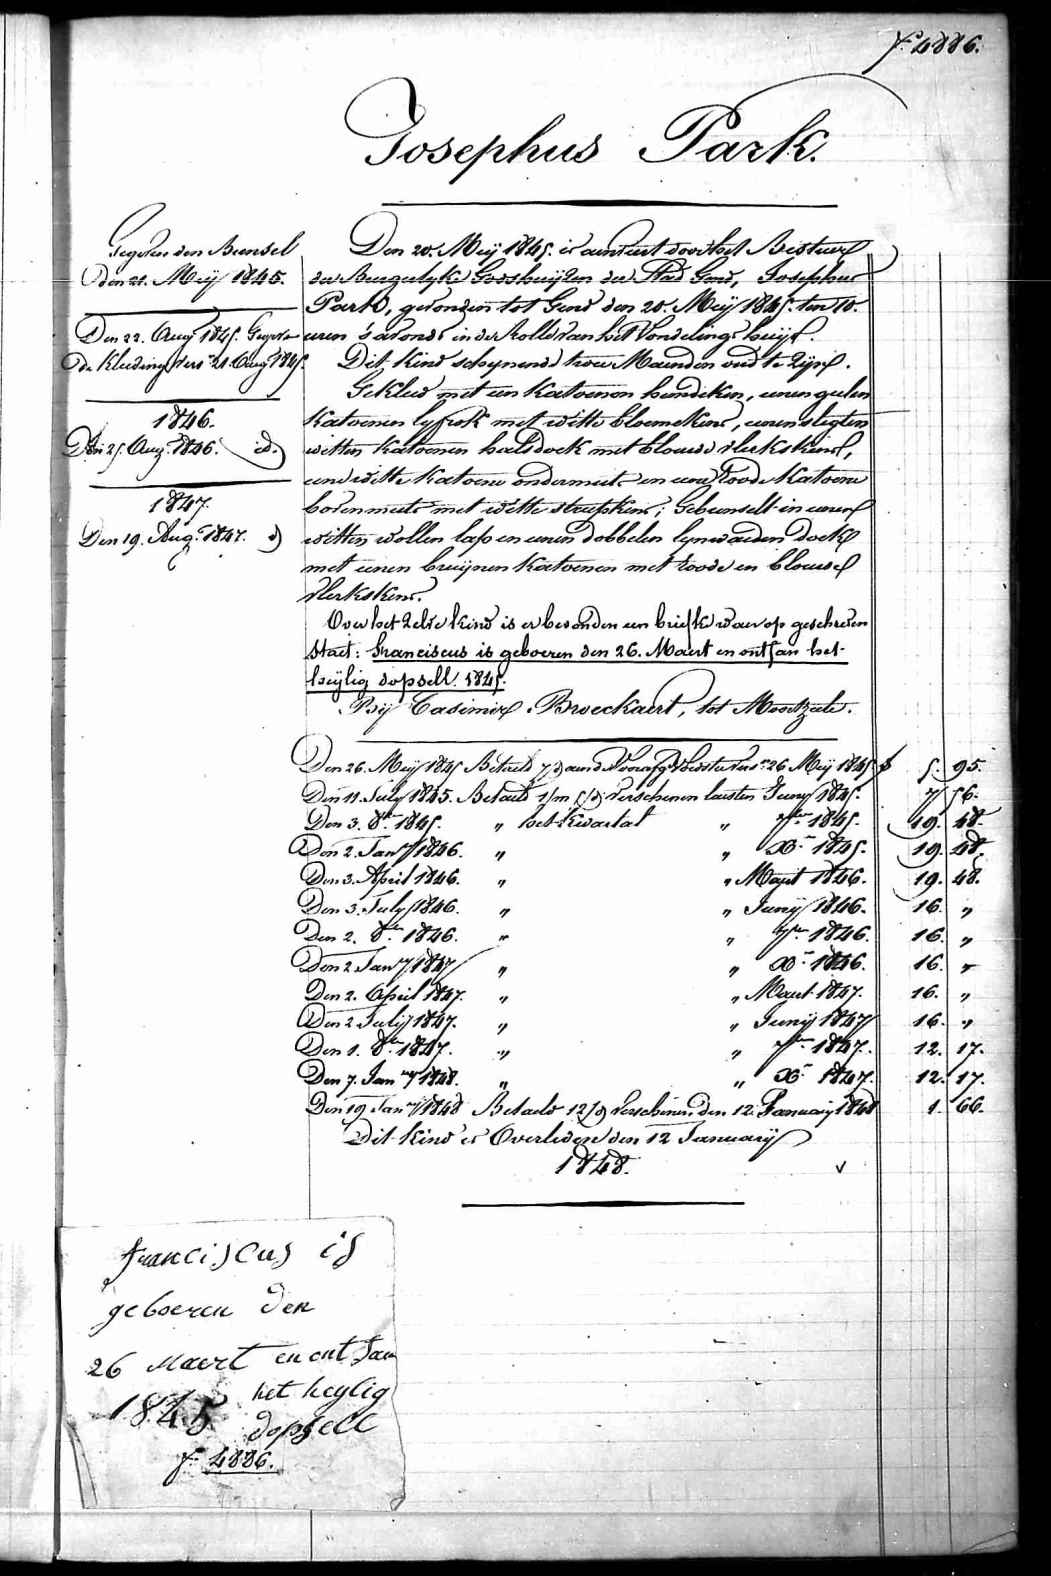 f° 4886.
Josephus Park.
Gegeven den Bunsel
Den 21. Meij 1845.
Den 22. Aug 1845. Gegeven
de Kleeding vers 21. Aug 1845.
1846.
Den 25. Aug. 1846. id.
1847.
Den 19. Aug. 1847. d
Den 20. Meij 1845. is aenveert door het Bestuer
der Burgerlyke Godshuijzen der Stad Gend, Josephus
Park, gevonden tot Gend den 20. Meij 1845. ten 10.
uren s'avonds in de Rolle van het Vondelingshuijs.
Dit kind schynende twee Maenden oud te zyn.
Gekleed met een katoenen hemdeken, eenen geelen
katoenen lyfrok met witte bloemekens, eenen slegten
witten katoenen halsdoek met blauwe vlekskens,
eene witte katoene ondermuts en eene roode katoene
bovenmuts met witte streepkens; Gebunselt in eenen
witten wollen lap en eenen dobbelen lynwaeden doek
met eenen bruijnen katoenen met roode en blauwe
vlekskens.
Over het zelve kind is er bevonden een briefke waer op geschreven
staet: franciscus is geboeren den 26. Maert en ontfan het
heijlig dopsell. 1845.
Bij Casimir Broeckaert, tot Moortzeele.
Den 26. Meij 1845 Betaeld 7/d aen de Voorafg Voedster vers 26 Meij 1845 f 5. 95.
Den 11. July 1845. Betaeld 1/m 5/d verschenen laesten Juny 1845. 7 56.
Den 3. 8bre 1845. " het Kwartal " 7bre 1845. 19. 48.
Den 2. Jany 1846. " " Xbre 1845. 19. 48.
Den 3. April 1846. " " Maert 1846. 19. 48.
Den 3. July 1846. " " Junij 1846. 16. "
Den 2. 8bre 1846. " " 7bre 1846. 16. "
Den 2 Jany 1847 " " Xbre 1846. 16. "
Den 2. April 1847. " " Maert 1847. 16. "
Den 2 July 1847. " " Junij 1847 16. "
Den 1. 8bre 1847. " " 7bre 1847. 12. 17.
Den 7. Jany 1848. " " Xbre 1847. 12. 17.
Den 19 Jany 1848 Betaeld 12/d verschenen den 12. January 1848 1. 66.
Dit kind is Overleden den 12 Januarij
1848.
franciscus is
geboeren den
26 Maert en ont fan
1845 het heylig
dopsell
f° 4886.